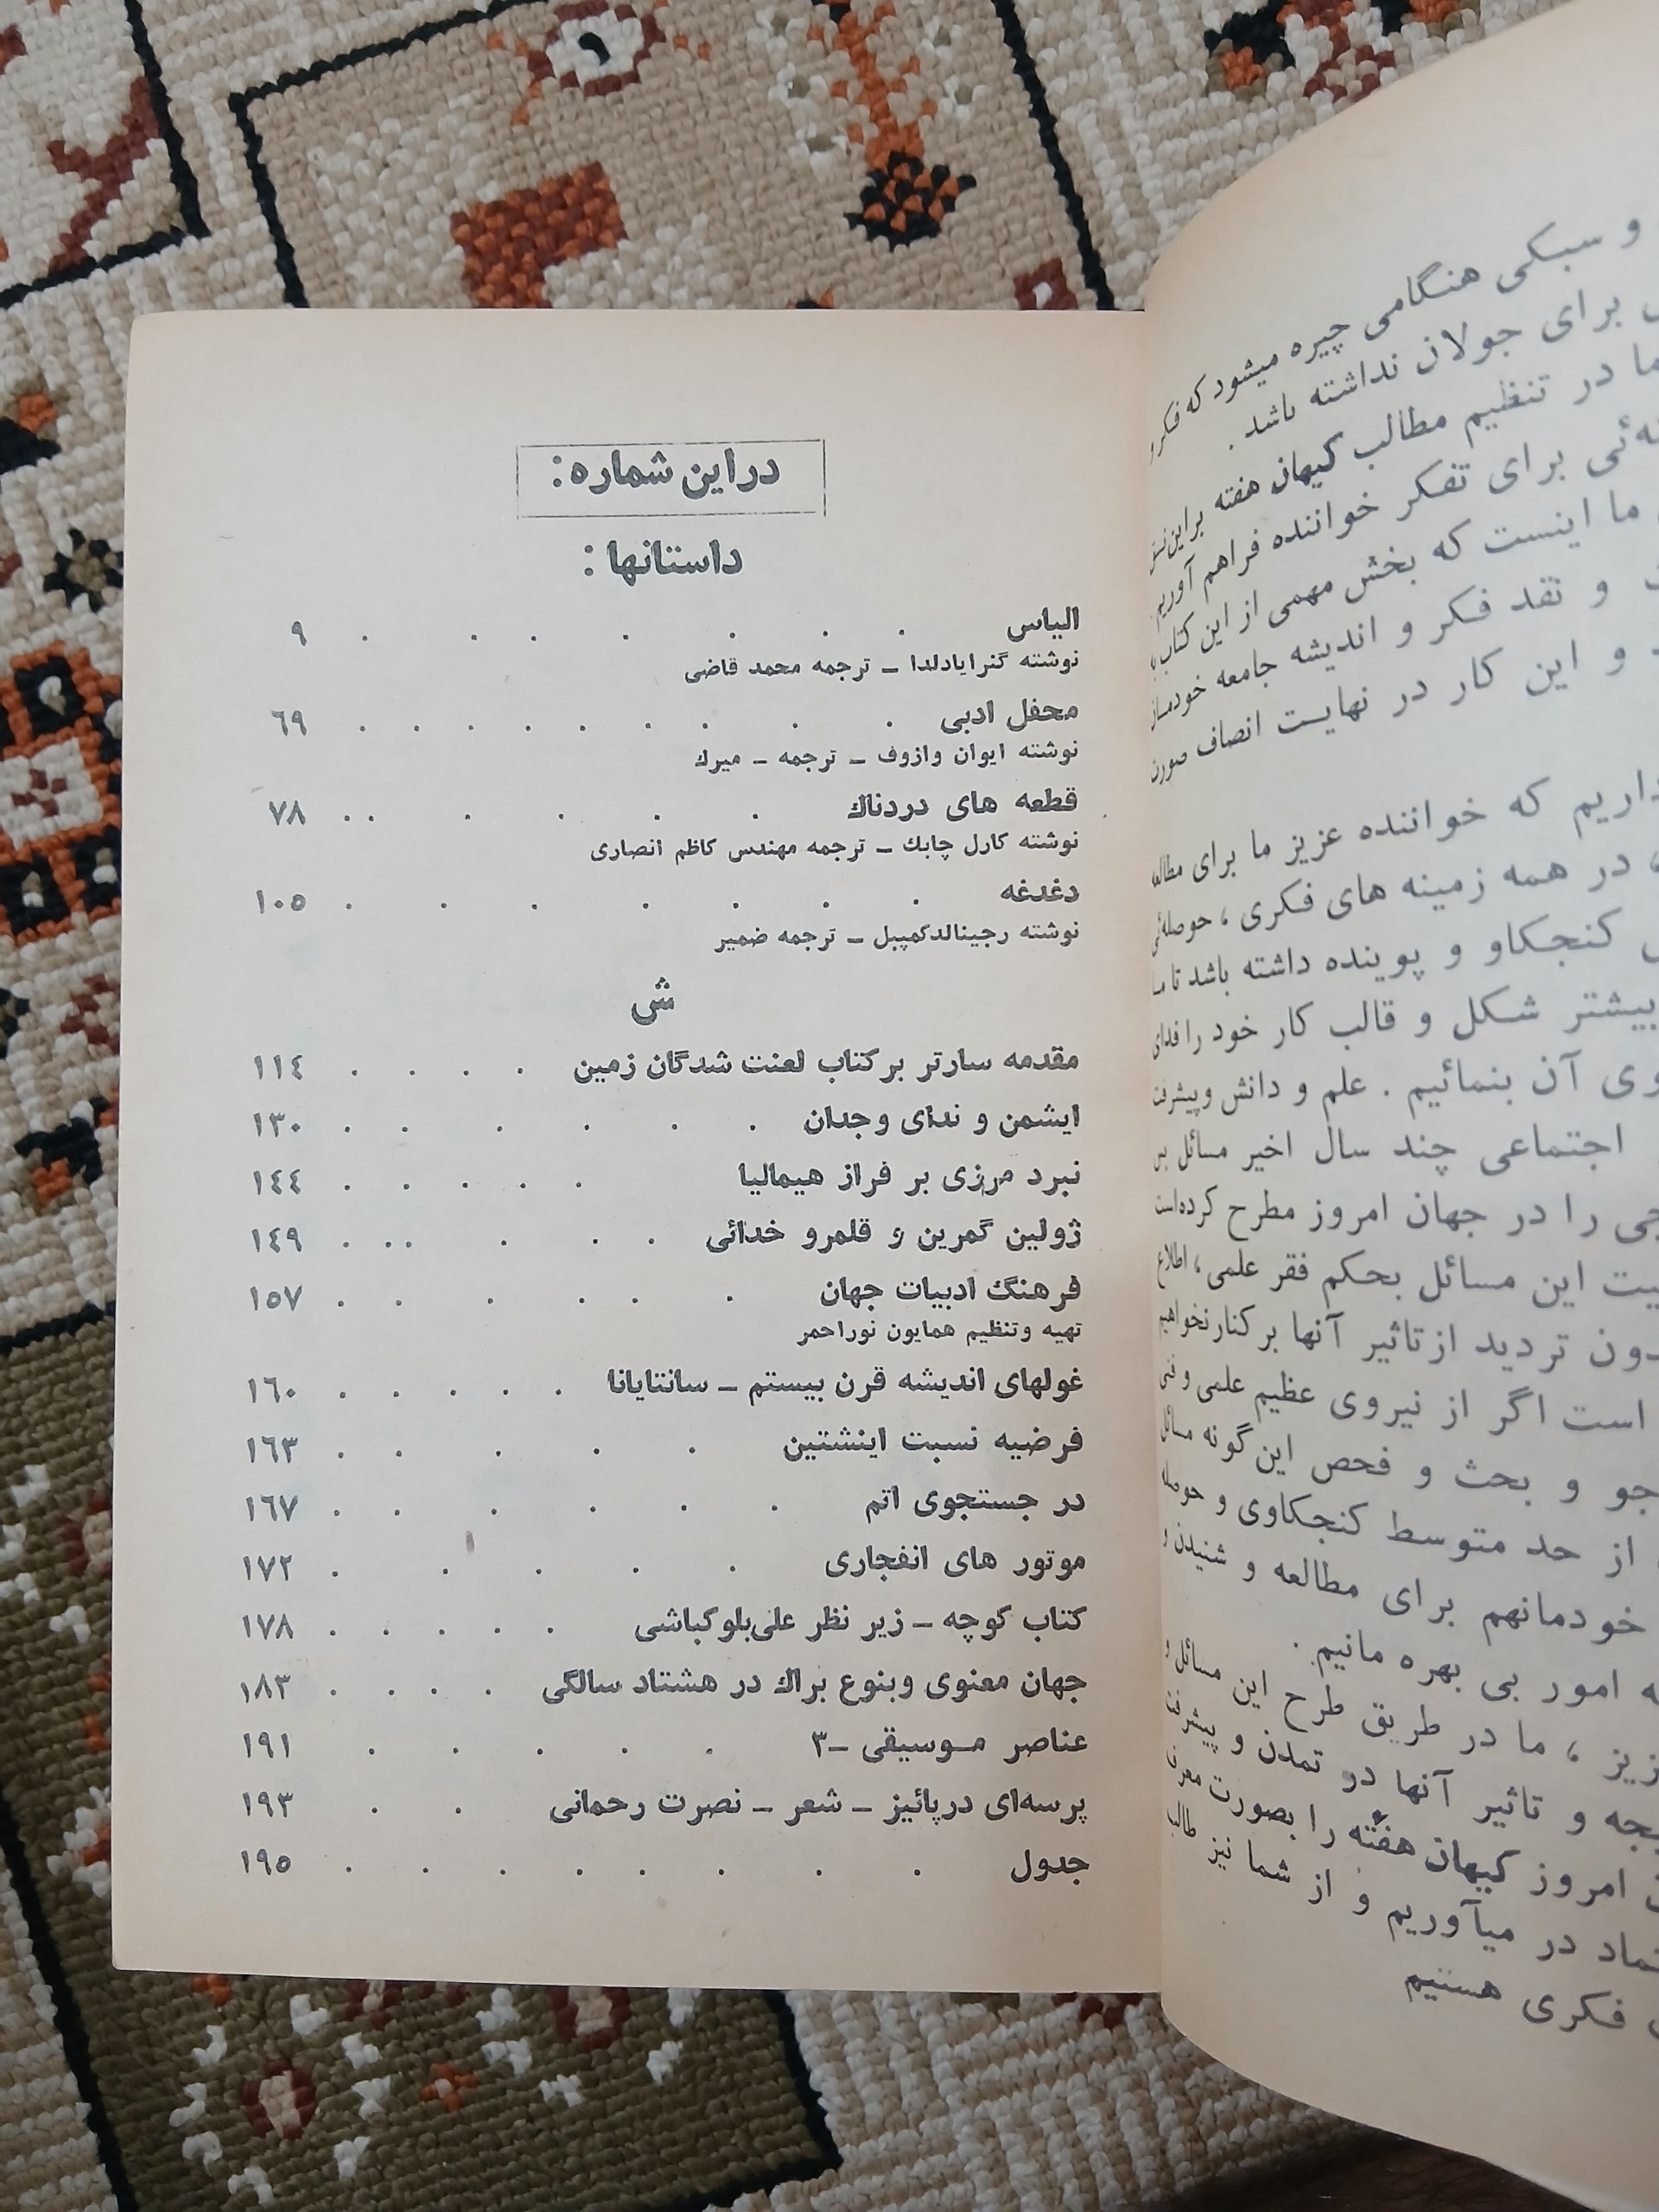 و سبکی هنگامی چیره میشود که فکر
برای جولان نداشته باشد .
ما در تنظیم مطالب کیهان هفته براین
برای تفکر خواننده فراهم آوریم
ما اینست که بخش مهمی از این کتاب
و نقد فکر و اندیشه جامعه خودمان
و این کار در نهایت انصاف صورت
داریم که خواننده عزیز ما برای مطالعه
در همه زمینه های فکری ، حوصله‌ئی
کنجکاو و پوینده داشته باشد تا ما
بیشتر شکل و قالب کار خود را فدای
آن بنمائیم . علم و دانش وپیشرفت
اجتماعی چند سال اخیر مسائل
را در جهان امروز مطرح کرده‌است
این مسائل بحکم فقر علمی ، اطلاع
تردید ازتاثیر آنها برکنارنخواهیم
است اگر از نیروی عظیم علمی و فنی
و بحث و فحص این گونه مسائل
از حد متوسط کنجکاوی و حوصله
خودمانهم برای مطالعه و شنیدن و
امور بی بهره مانیم .
، ما در طریق طرح این مسائل و
و تاثیر آنها در تمدن و پیشرفت
امروز کیهان هفته را بصورت
در میآوریم و از شما نیز طالب
فکری هستیم
دراین شماره:
داستانها :
الیاس . . . . . . . ۹
نوشته گنرایادلدا – ترجمه محمد قاضی
محفل ادبی . . . . . . . . . ٦۹
نوشته ایوان وازوف – ترجمه – میرك
قطعه های دردناك . . . . . . ۷۸
نوشته کارل چابك – ترجمه مهندس کاظم انصاری
دغدغه . . . . . . . ۱۰۵
نوشته رجینالدکمپبل – ترجمه ضمیر
ش
مقدمه سارتر برکتاب لعنت شدگان زمین . . . . ۱۱٤
ایشمن و ندای وجدان . . . . . . ۱۳۰
نبرد مرزی بر فراز هیمالیا . . . . . ۱٤٤
ژولین گمرین و قلمرو خدائی . . . . . . ۱٤۹
فرهنگ ادبیات جهان . . . . . . ۱۵۷
تهیه وتنظیم همایون نوراحمر
غولهای اندیشه قرن بیستم – سانتایانا . . . . . ۱٦۰
فرضیه نسبت اینشتین . . . . . . ۱٦۳
در جستجوی اتم . . . . . . . ۱٦۷
موتور های انفجاری . . . . . ۱۷۲
کتاب کوچه – زیر نظر علی‌بلوکباشی . . . . . ۱۷۸
جهان معنوی وبنوع براك در هشتاد سالگی . . . . ۱۸۳
عناصر موسیقی –۳ . . . . . ۱۹۱
پرسه‌ای درپائیز – شعر – نصرت رحمانی . . ۱۹۳
جدول . . . . . . . . ۱۹۵